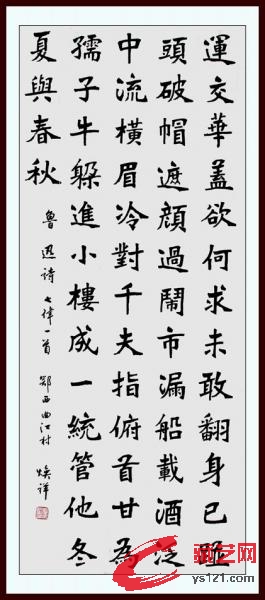 運交華蓋欲何求未敢翻身已碰
頭破帽遮顏過鬧市漏船載酒泛
中流橫眉冷對千夫指俯首甘為
孺子牛躲進小樓成一統管他冬
夏與春秋
魯迅詩 七律一首 鄂西曲江村 焕祥
艺网.com
ys121.com